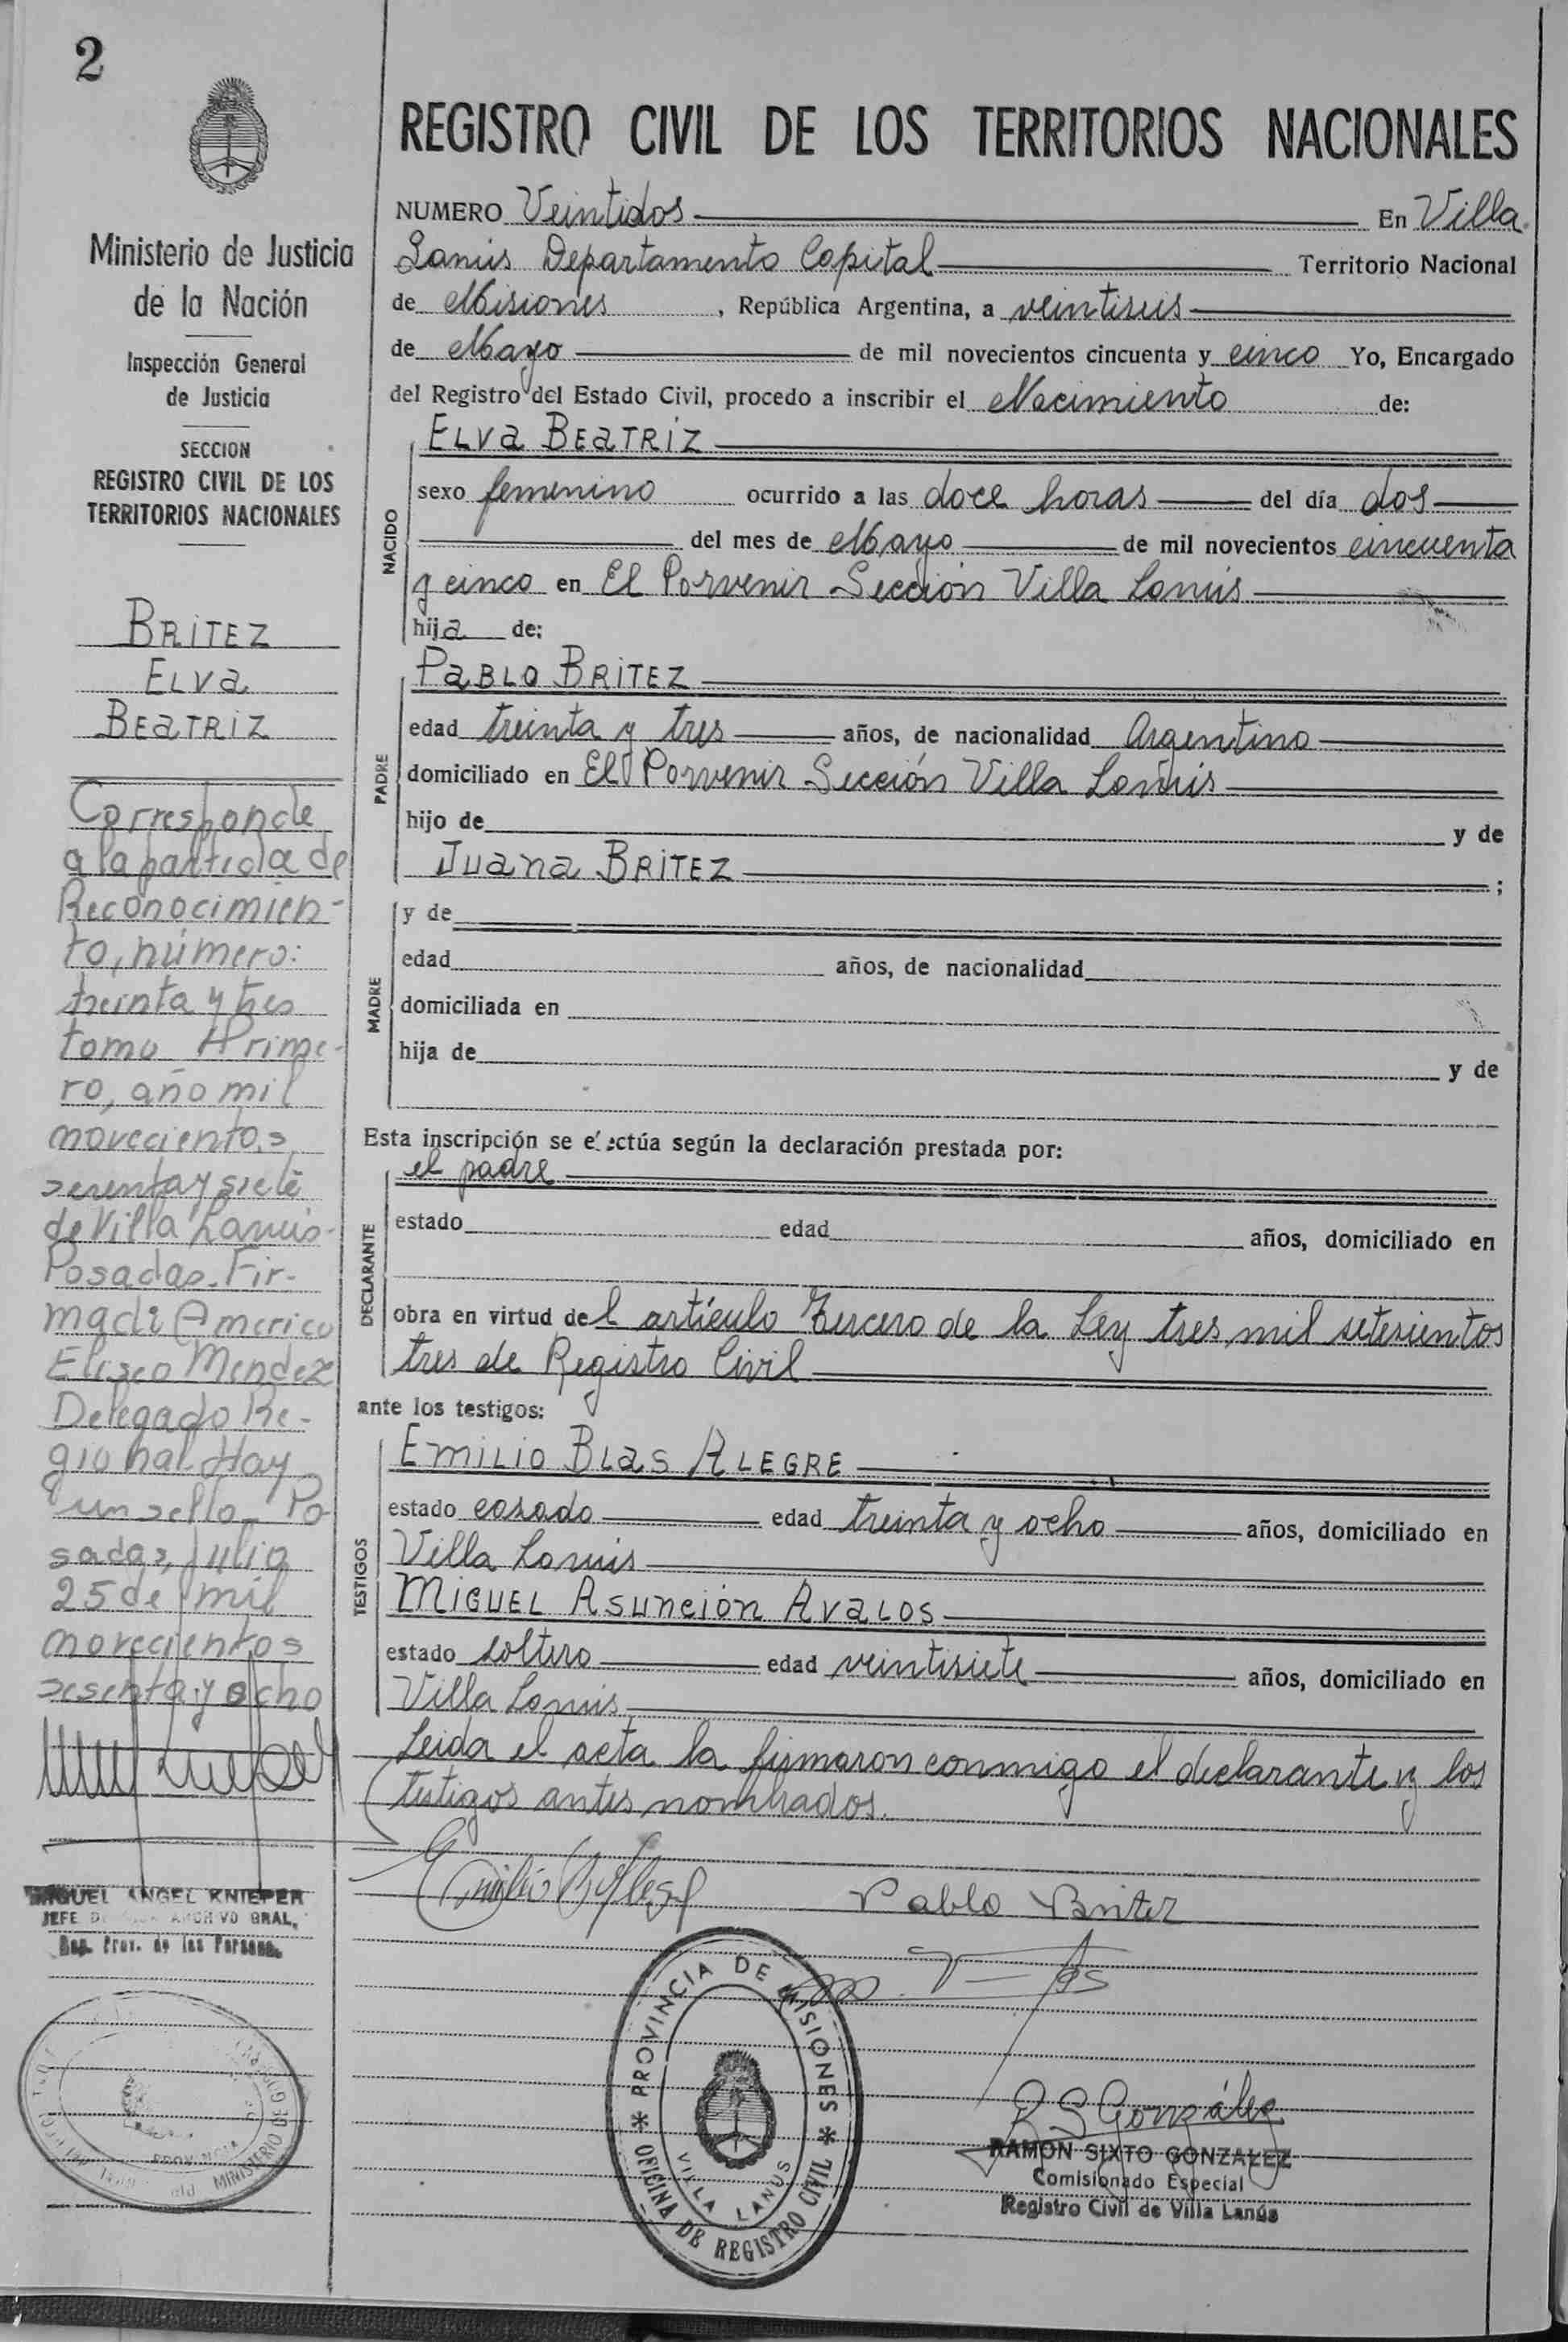 2
Ministerio de Justicia
de la Nación
Inspección General
de Justicia
SECCION
REGISTRO CIVIL DE LOS
TERRITORIOS NACIONALES
BRITEZ
ELVA
BEATRIZ
Corresponde
a la partida de
Reconocimien-
to, número:
treinta y tres
tomo Prime-
ro, año mil
novecientos
sesenta y siete
de Villa Lanús-
Posadas. Fir-
mado: Americo
Eliseo Mendez
Delegado Re-
gional Hay
un sello - Po
sadas, Julio
25 de mil
novecientos
sesenta y ocho
MIGUEL ANGEL KNIEPER
JEFE ARCHIVO GRAL.
Reg. Prov. de las Personas
PROVINCIA
MINISTERIO DE
REGISTRO CIVIL DE LOS TERRITORIOS NACIONALES
NUMERO Veintidos En Villa
Lanús Departamento Capital Territorio Nacional
de Misiones, República Argentina, a veintiseis
de Mayo de mil novecientos cincuenta y cinco Yo, Encargado
del Registro del Estado Civil, procedo a inscribir el Nacimiento de:
NACIDO
ELVA BEATRIZ
sexo femenino ocurrido a las doce horas del día dos
del mes de Mayo de mil novecientos cincuenta
y cinco en El Porvenir Sección Villa Lanús
hija de:
PADRE
PABLO BRITEZ
edad treinta y tres años, de nacionalidad Argentino
domiciliado en El Porvenir Sección Villa Lanús
hijo de y de
JUANA BRITEZ ;
MADRE
y de
edad años, de nacionalidad
domiciliada en
hija de y de
Esta inscripción se efectúa según la declaración prestada por:
DECLARANTE
el padre
estado edad años, domiciliado en
obra en virtud del artículo Tercero de la Ley tres mil setesientos
tres de Registro Civil
ante los testigos:
TESTIGOS
EMILIO BLAS ALEGRE
estado casado edad treinta y ocho años, domiciliado en
Villa Lanús
MIGUEL ASUNCIÓN AVALOS
estado soltero edad veintisiete años, domiciliado en
Villa Lanús
Leida el acta la firmaron conmigo el declarante y los
testigos antes nombrados.
Pablo Britez
PROVINCIA DE MISIONES
OFICINA DE REGISTRO CIVIL
VILLA LANUS
R S González
RAMON SIXTO GONZALEZ
Comisionado Especial
Registro Civil de Villa Lanús